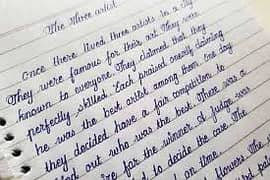 The three artist
Once there lived three artists in a city
They were famous for their art They were
known to everyone They claimed that they
perfectly skilled. Each praised overly claiming
he was the best artist among them. One day
they decided have a fair competition to
out who was the best. There was a
for the winner of judge was
to decide the case. The
on time
flowers. The